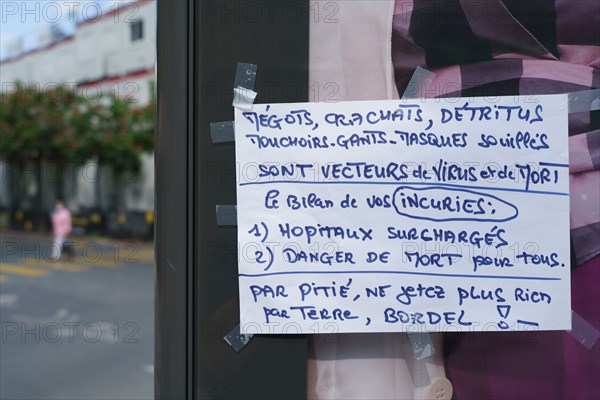 MÉGOTS, CRACHATS, DÉTRITUS
MOUCHOIRS-GANTS-MASQUES souillés
SONT VECTEURS de VIRUS et de MORT
le Bilan de vos INCURIES:
1) HOPITAUX SURCHARGÉS
2) DANGER DE MORT pour tous.
PAR PITIÉ, NE jetez plus Rien
par TERRE, BORDEL !